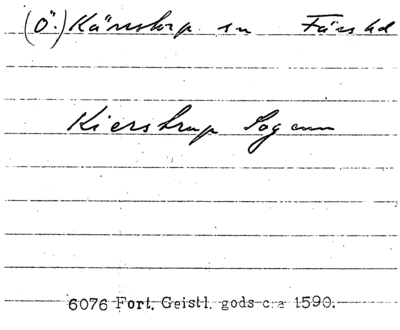 (Ö.) Kärrstorp sn Färs hd
Kierstrup Sogenn
6076 Fort. Geistl. gods c:a 1590.